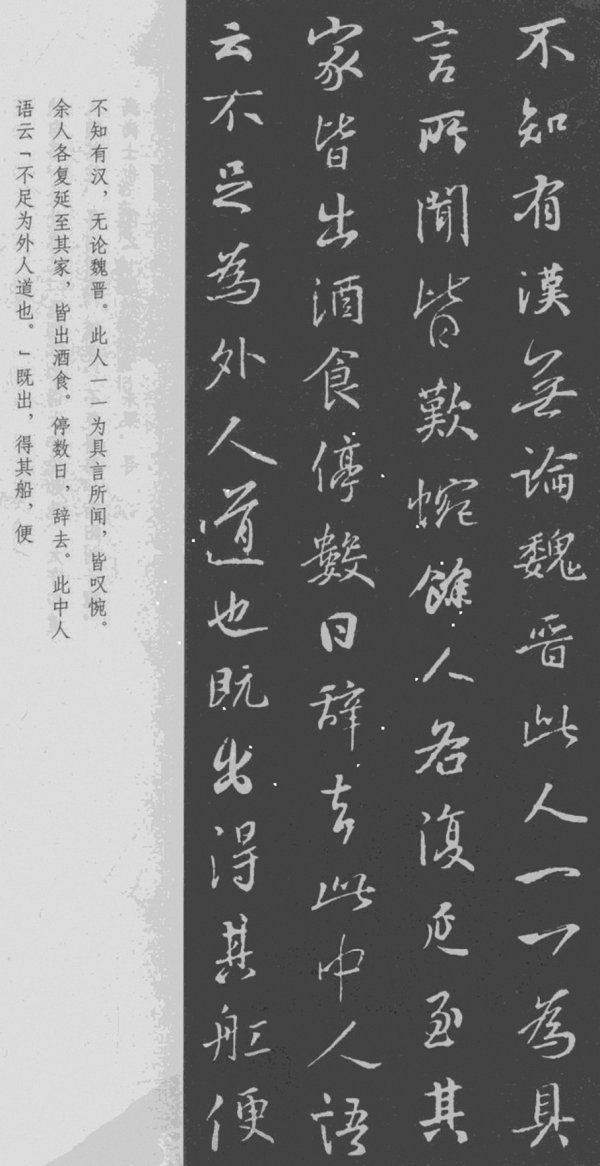 不知有漢無論魏晋此人一一為具
言所聞皆歎惋餘人各復延至其
家皆出酒食停數日辞去此中人語
云不足為外人道也既出得其舡便
不知有汉，无论魏晋。此人一一为具言所闻，皆叹惋。
余人各复延至其家，皆出酒食。停数日，辞去。此中人
语云「不足为外人道也。」既出，得其船，便